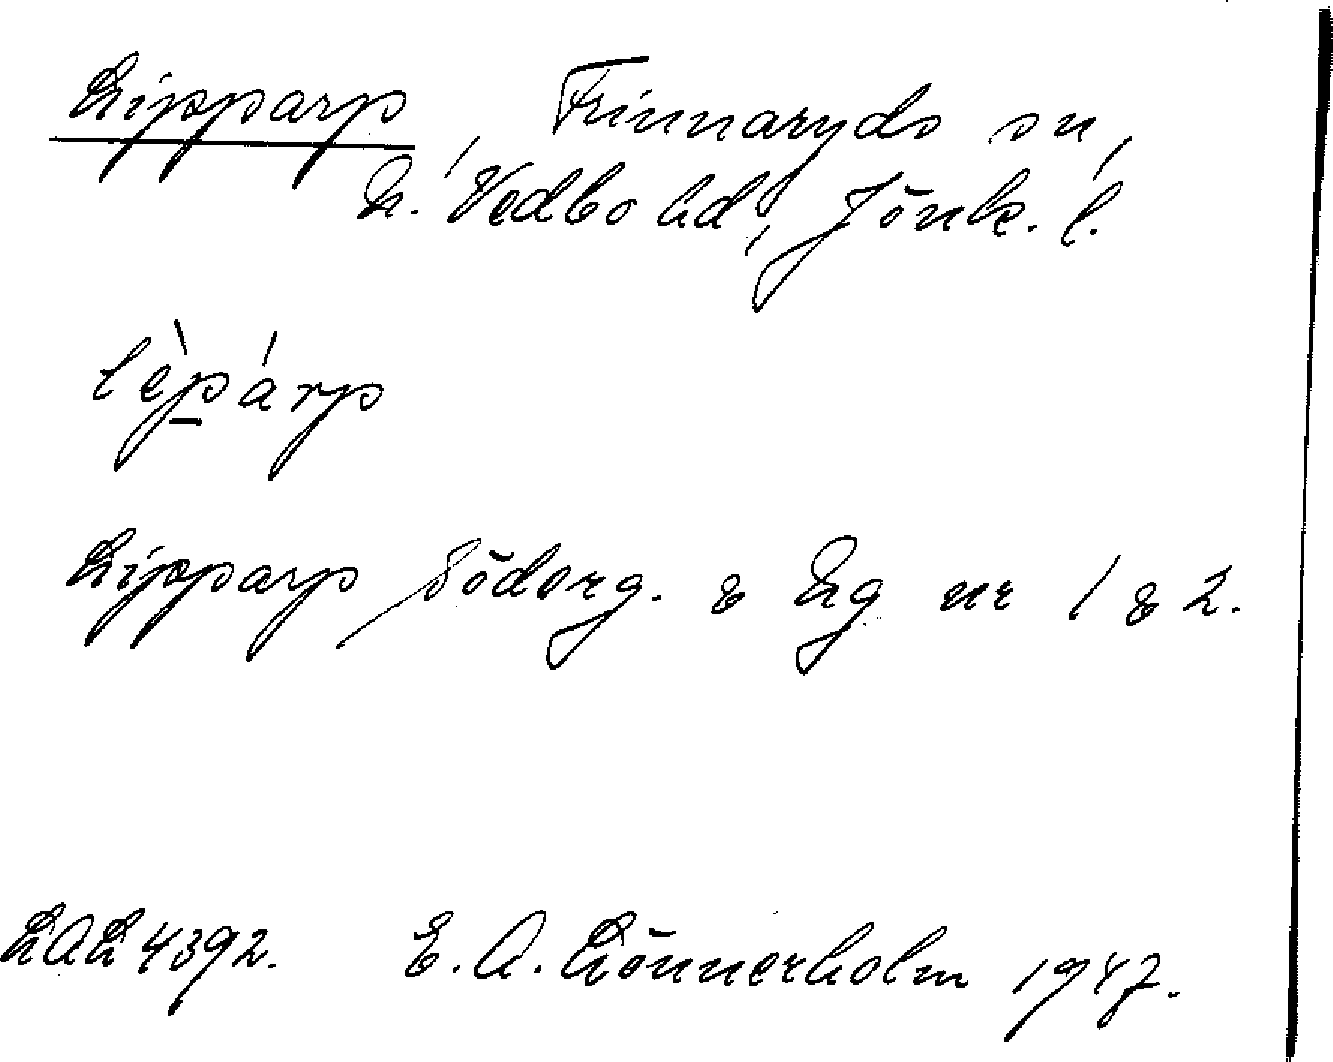 Lipparp, Frinnaryds sn,
N. Vedbo hd, Jönk. l.
lèpárp
Lipparp Söderg. & Lg nr 1 & 2.
LAL 4392. E. A. Lönnerholm 1947.